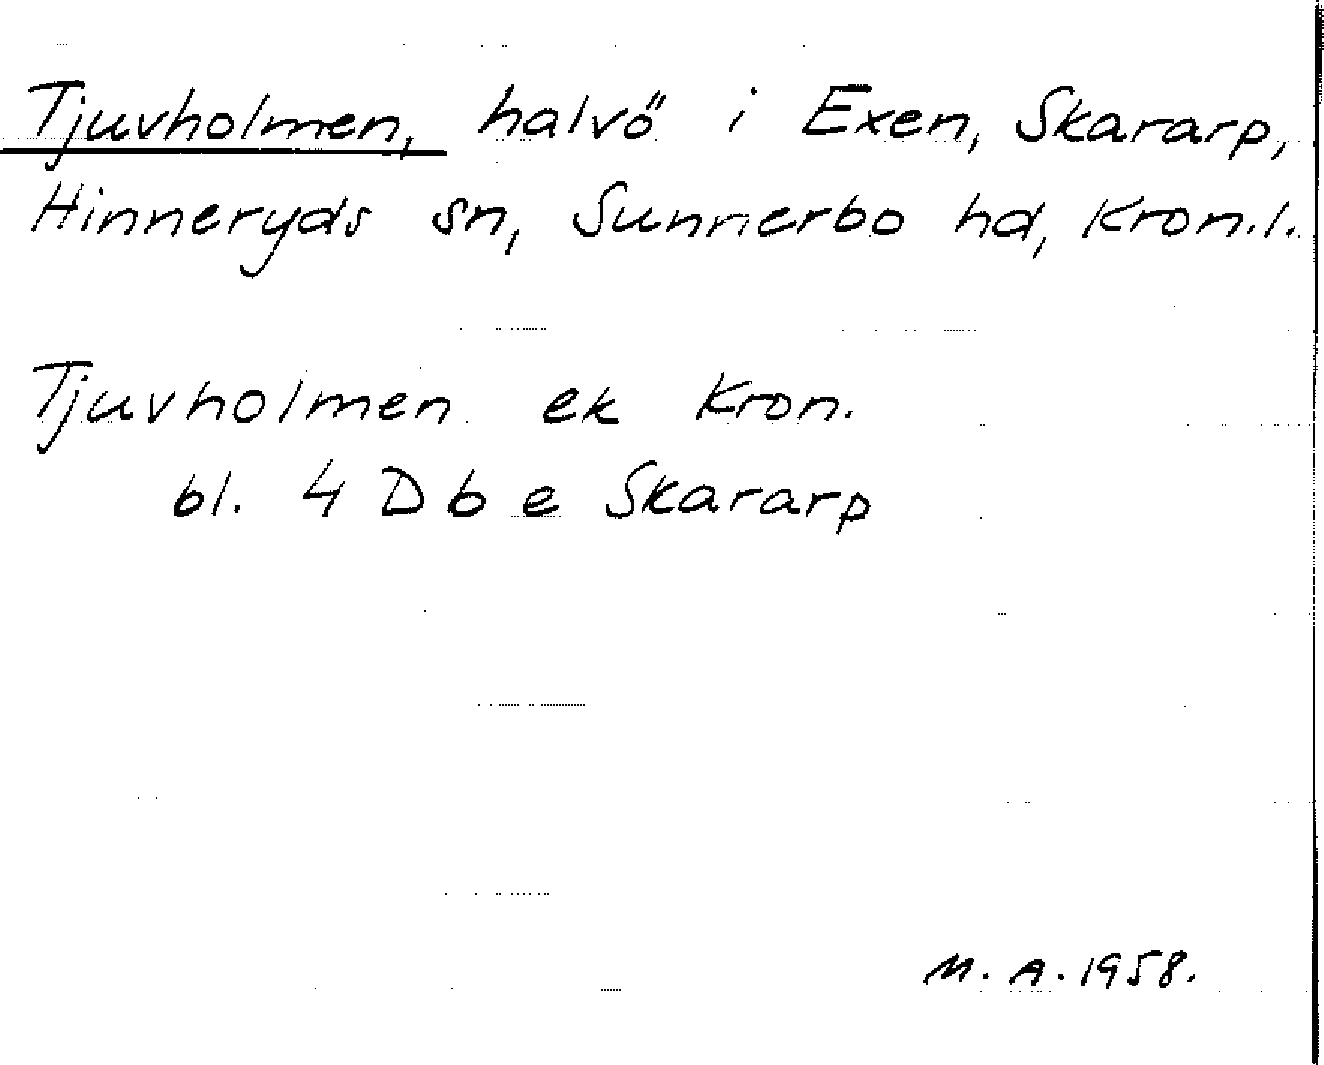 Tjuvholmen, halvö i Exen, Skararp,
Hinneryds sn, Sunnerbo hd, Kron.l.
Tjuvholmen ek Kron.
bl. 4 D b e Skararp
M. A. 1958.